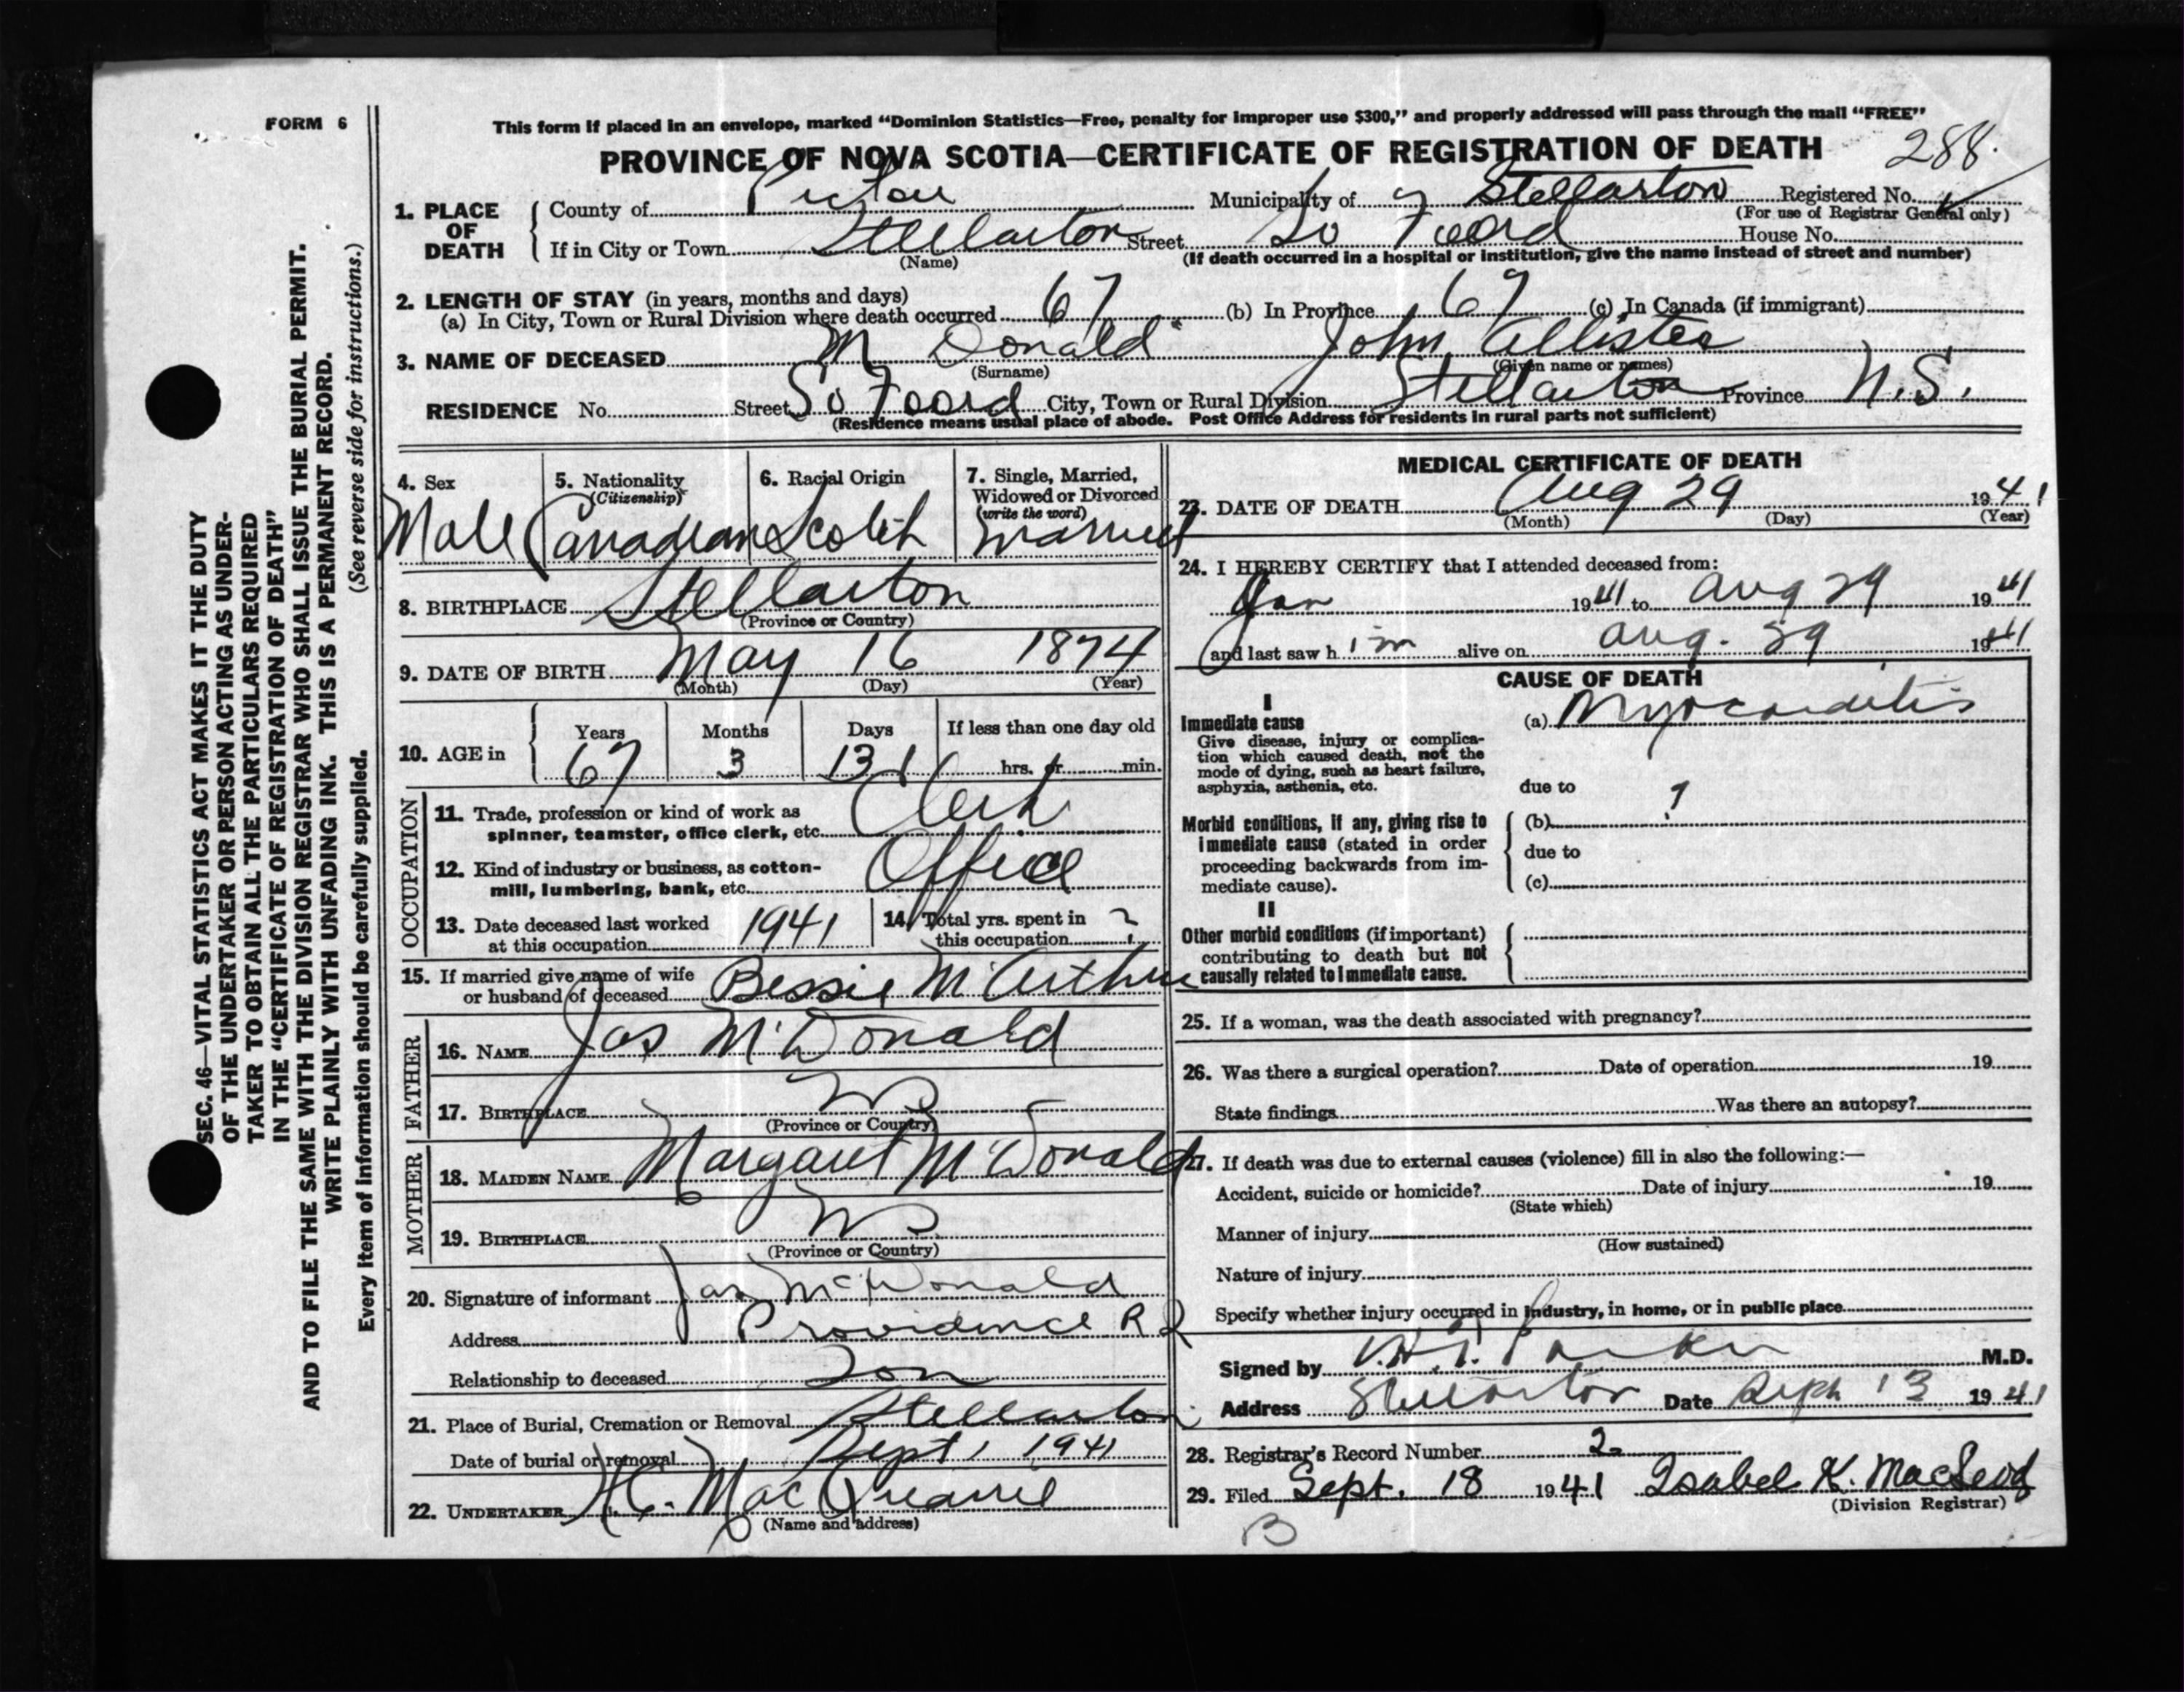 FORM 6
This form if placed in an envelope, marked “Dominion Statistics—Free, penalty for improper use $300,” and properly addressed will pass through the mail “FREE”
PROVINCE OF NOVA SCOTIA—CERTIFICATE OF REGISTRATION OF DEATH 288.
1. PLACE OF DEATH
County of Pictou Municipality of Stellarton Registered No.
(For use of Registrar General only)
If in City or Town Stellarton Street So Foord House No.
(Name) (If death occurred in a hospital or institution, give the name instead of street and number)
2. LENGTH OF STAY (in years, months and days)
(a) In City, Town or Rural Division where death occurred 67 (b) In Province 67 (c) In Canada (if immigrant)
3. NAME OF DECEASED Mc Donald John Allister
(Surname) (Given name or names)
RESIDENCE No. Street So Foord City, Town or Rural Division Stellarton Province N.S.
(Residence means usual place of abode. Post Office Address for residents in rural parts not sufficient)
4. Sex
Male
5. Nationality
(Citizenship)
Canadian
6. Racial Origin
Scotch
7. Single, Married,
Widowed or Divorced
(write the word)
Married
8. BIRTHPLACE Stellarton
(Province or Country)
9. DATE OF BIRTH May 16 1874
(Month) (Day) (Year)
10. AGE in
Years Months Days If less than one day old
67 3 13 hrs. or min.
OCCUPATION
11. Trade, profession or kind of work as
spinner, teamster, office clerk, etc. Clerk
12. Kind of industry or business, as cotton-
mill, lumbering, bank, etc. Office
13. Date deceased last worked
at this occupation 1941
14. Total yrs. spent in
this occupation ?
15. If married give name of wife
or husband of deceased Bessie McArthur
FATHER
16. NAME Jas McDonald
17. BIRTHPLACE
(Province or Country)
MOTHER
18. MAIDEN NAME Margaret McDonald
19. BIRTHPLACE
(Province or Country)
20. Signature of informant Jas McDonald
Address Providence R I
Relationship to deceased Son
21. Place of Burial, Cremation or Removal Stellarton
Date of burial or removal Sept 1 1941
22. UNDERTAKER MacQuarrie
(Name and address)
MEDICAL CERTIFICATE OF DEATH
23. DATE OF DEATH Aug 29 1941
(Month) (Day) (Year)
24. I HEREBY CERTIFY that I attended deceased from:
Jan 1941 to Aug 29 1941
and last saw him alive on Aug. 29 1941
CAUSE OF DEATH
I
Immediate cause
Give disease, injury or complica-
tion which caused death, not the
mode of dying, such as heart failure,
asphyxia, asthenia, etc.
(a) Myocarditis
due to
Morbid conditions, if any, giving rise to
immediate cause (stated in order
proceeding backwards from im-
mediate cause).
(b) ?
due to
(c)
II
Other morbid conditions (if important)
contributing to death but not
causally related to immediate cause.
25. If a woman, was the death associated with pregnancy?
26. Was there a surgical operation? Date of operation 19
State findings Was there an autopsy?
27. If death was due to external causes (violence) fill in also the following:—
Accident, suicide or homicide? Date of injury 19
(State which)
Manner of injury
(How sustained)
Nature of injury
Specify whether injury occurred in industry, in home, or in public place
Signed by V.H.T. Parker M.D.
Address Stellarton Date Sept 13 1941
28. Registrar's Record Number 2
29. Filed Sept. 18 1941 Isabel K. MacLeod
(Division Registrar)
B
SEC. 46—VITAL STATISTICS ACT MAKES IT THE DUTY
OF THE UNDERTAKER OR PERSON ACTING AS UNDER-
TAKER TO OBTAIN ALL THE PARTICULARS REQUIRED
IN THE “CERTIFICATE OF REGISTRATION OF DEATH”
AND TO FILE THE SAME WITH THE DIVISION REGISTRAR WHO SHALL ISSUE THE BURIAL PERMIT.
WRITE PLAINLY WITH UNFADING INK. THIS IS A PERMANENT RECORD.
(See reverse side for instructions.)
Every item of information should be carefully supplied.